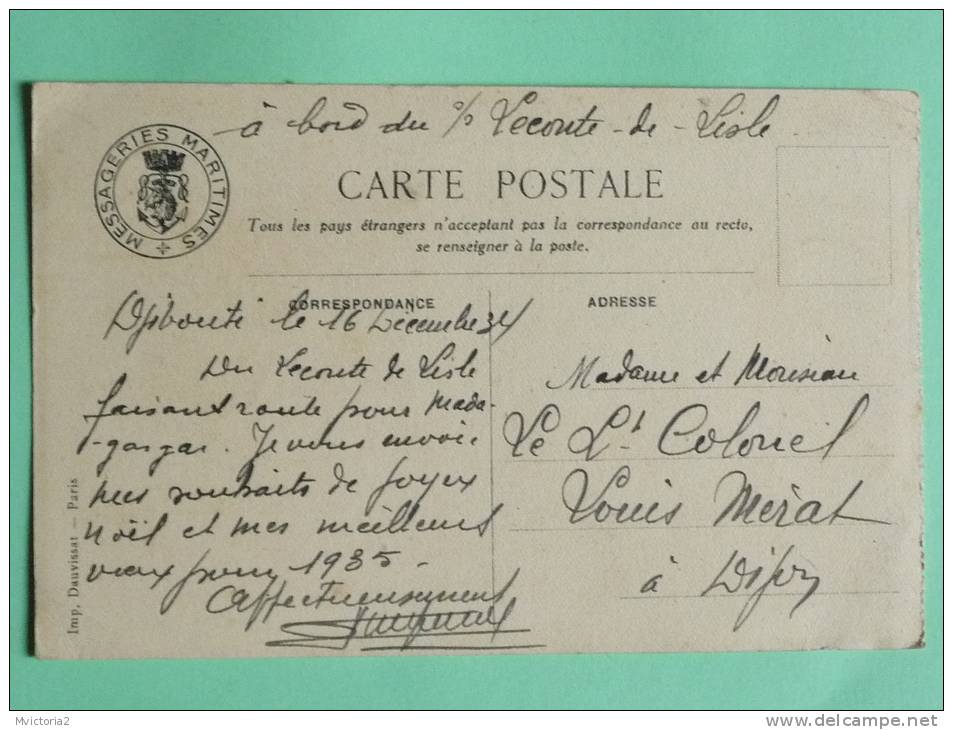 à bord du s/s Leconte-de-Lisle
MESSAGERIES MARITIMES
CARTE POSTALE
Tous les pays étrangers n'acceptant pas la correspondance au recto,
se renseigner à la poste.
CORRESPONDANCE
Djibouti le 16 Décembre 34
Du Leconte de Lisle
faisant route pour Mada-
-gasgar. Je vous envoie
mes souhaits de joyeux
Noël et mes meilleurs
vœux pour 1935-
Affectueusement
ADRESSE
Madame et Monsieur
Le Lt Colonel
Louis Mérat
à Dijon
Imp. Dauvissat — Paris
Mvictoria2
www.delcampe.net